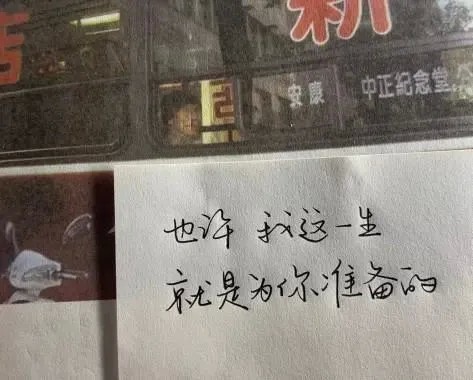 店
新
安康 中正紀念堂
也许 我这一生
就是为你准备的